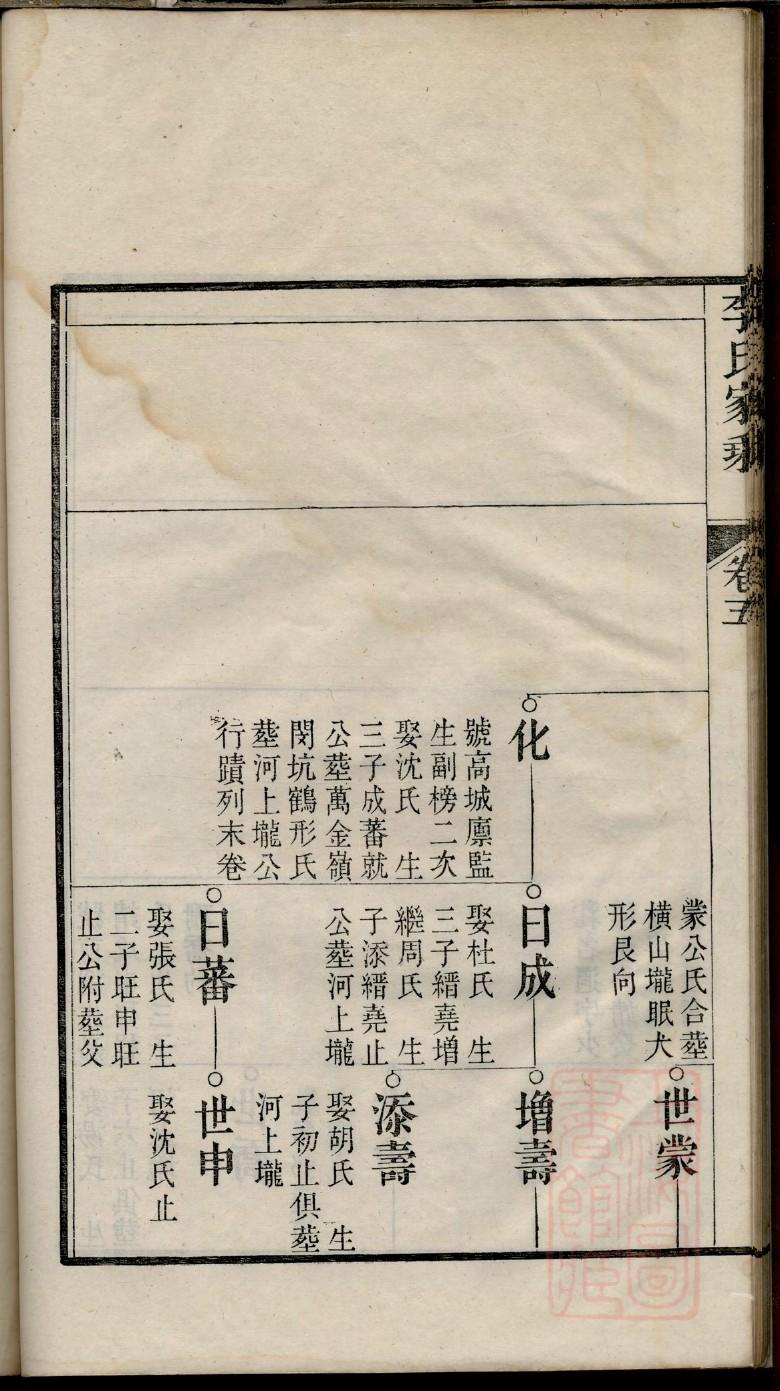 李氏家乘
卷五
蒙公氏合塟
横山壠眠犬
形艮向
世蒙
化
號高城廪監
生副榜二次
娶沈氏 生
三子成蕃就
公塟萬金嶺
閔坑鶴形氏
塟河上壠公
行蹟列末卷
日成
娶杜氏 生
三子縉堯增
繼周氏 生
子添縉堯止
公塟河上壠
增壽
添壽
娶胡氏 生
子初止俱塟
河上壠
日蕃
娶張氏 生
二子旺申旺
止公附塟父
世申
娶沈氏止